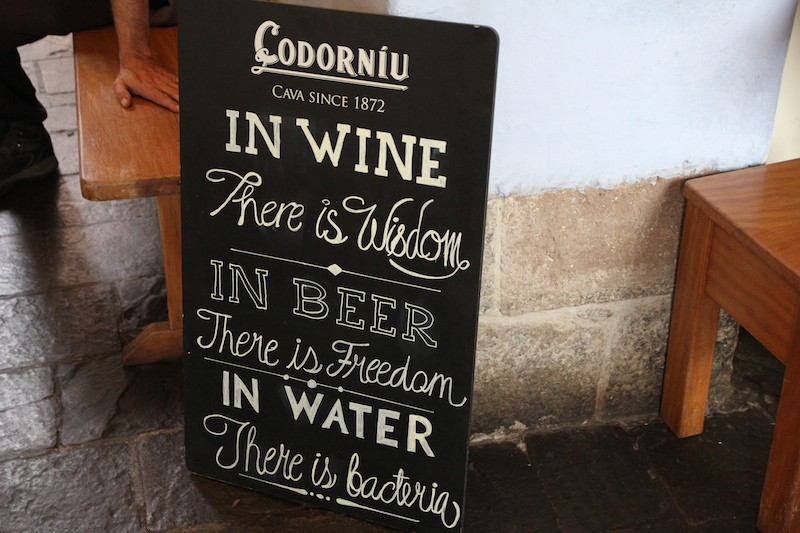 CODORNÍU
CAVA SINCE 1872
IN WINE
There is Wisdom
IN BEER
There is Freedom
IN WATER
There is bacteria